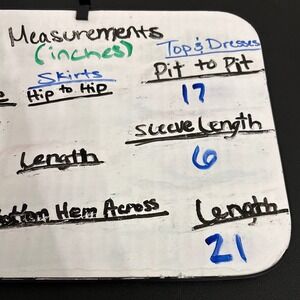 Measurements
(inches)
Skirts
Hip to Hip
Length
Hem Across
Top & Dresses
Pit to Pit
17
Sleeve Length
6
Length
21